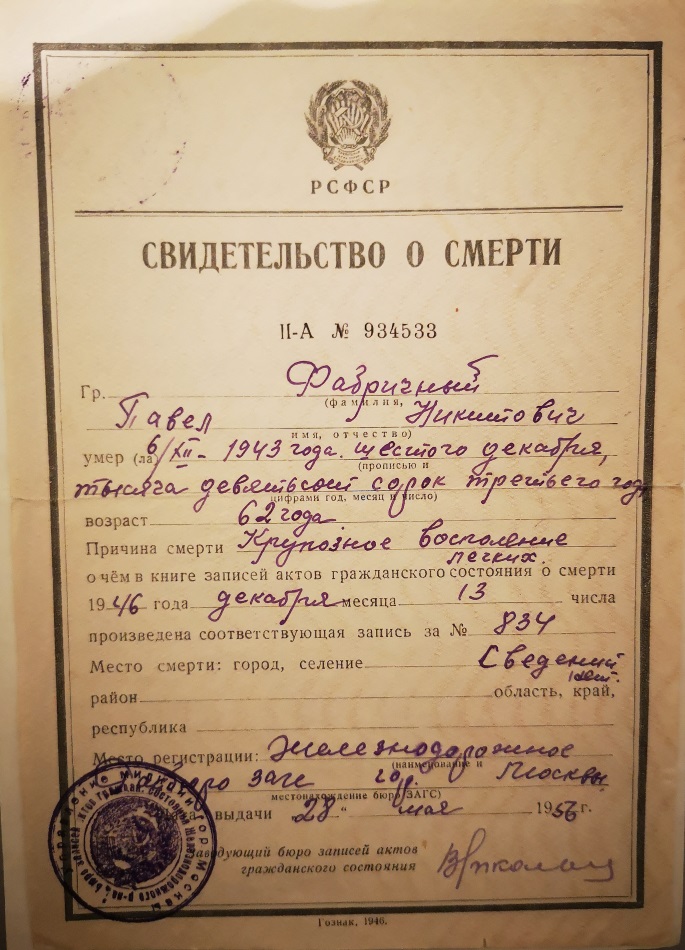 РСФСР
СВИДЕТЕЛЬСТВО О СМЕРТИ
II-А № 934533
Гр. Фабричный
(фамилия,
Павел Никитович
имя, отчество)
умер (ла) 6/XII - 1943 года. шестого декабря,
(прописью и
тысяча девятьсот сорок третьего года
цифрами год, месяц и число)
возраст 62 года
Причина смерти Крупозное воспаление
легких.
о чём в книге записей актов гражданского состояния о смерти
1946 года декабря месяца 13 числа
произведена соответствующая запись за № 834
Место смерти: город, селение Сведений
нет.
район область, край,
республика
Место регистрации: Железнодорожное
(наименование и
бюро загс гор. Москвы
местонахождение бюро ЗАГС)
Дата выдачи „28“ мая 1956 г.
Заведующий бюро записей актов
гражданского состояния
Гознак, 1946.